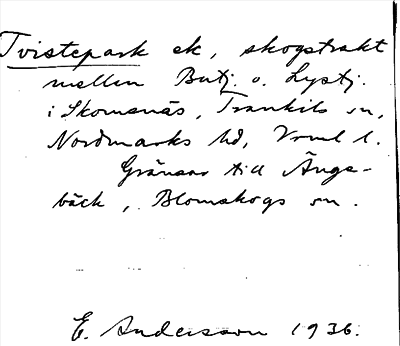 Tvistepark ek, skogstrakt
mellan Butj. o. Lystj.
i Skomenäs, Trankils sn,
Nordmarks hd, Vrml l.
Gränsar till Ängs-
bäck, Blomskogs sn.
E. Andersson 1936.